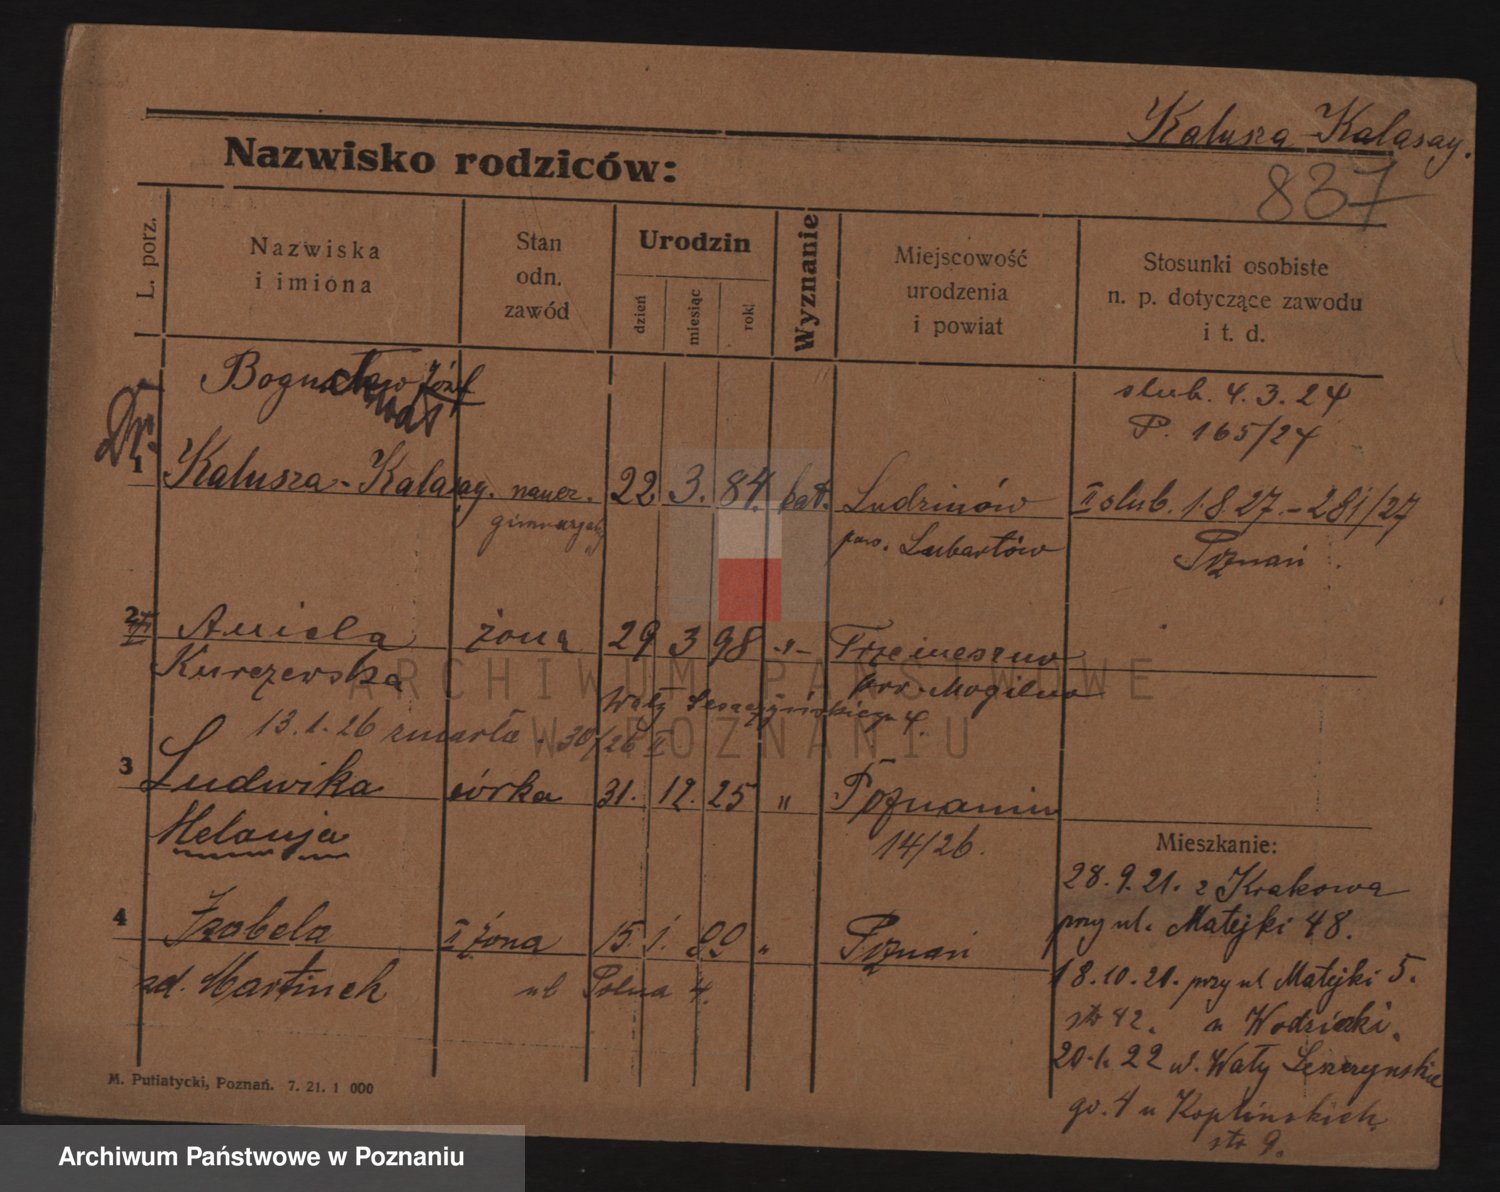 Kalusza-Kalasay.
837
Nazwisko rodziców:
L. porz.
Nazwiska
i imiona
Stan
odn.
zawód
Urodzin
dzień
miesiąc
rok
Wyznanie
Miejscowość
urodzenia
i powiat
Stosunki osobiste
n. p. dotyczące zawodu
i t. d.
Bogusław Józef
ślub. 4.3.24
P. 165/24
Dr.
1 Kalusza-Kalasay. naucz. 22. 3. 84. kat. Ludzinów II ślub. 1.8.27. - 281/27
pow. Lubartów Poznań
2 Aniela żona 29 3 98 -"- Trzemeszno
Kurczewska pow. Mogilno
Wały Leszczyńskiego 4.
13.1.26 zmarła. 30/26 II
3 Ludwika córka 31. 12. 25 " Poznaniu
Melanja 14/26.
Mieszkanie:
28.9.21. z Krakowa
przy ul. Matejki 48.
4 Izabela II żona 15. 1. 89 " Poznań
zd. Martinek ul Polna 4.
18.10.21. przy ul Matejki 5.
str 42. u
20.1.22 ul. Wały Leszczyńskie
go. 4 u Koplińskich
str 9.
M. Putiatycki, Poznań. 7. 21. 1 000
ARCHIWUM PAŃSTWOWE
W POZNANIU
Archiwum Państwowe w Poznaniu